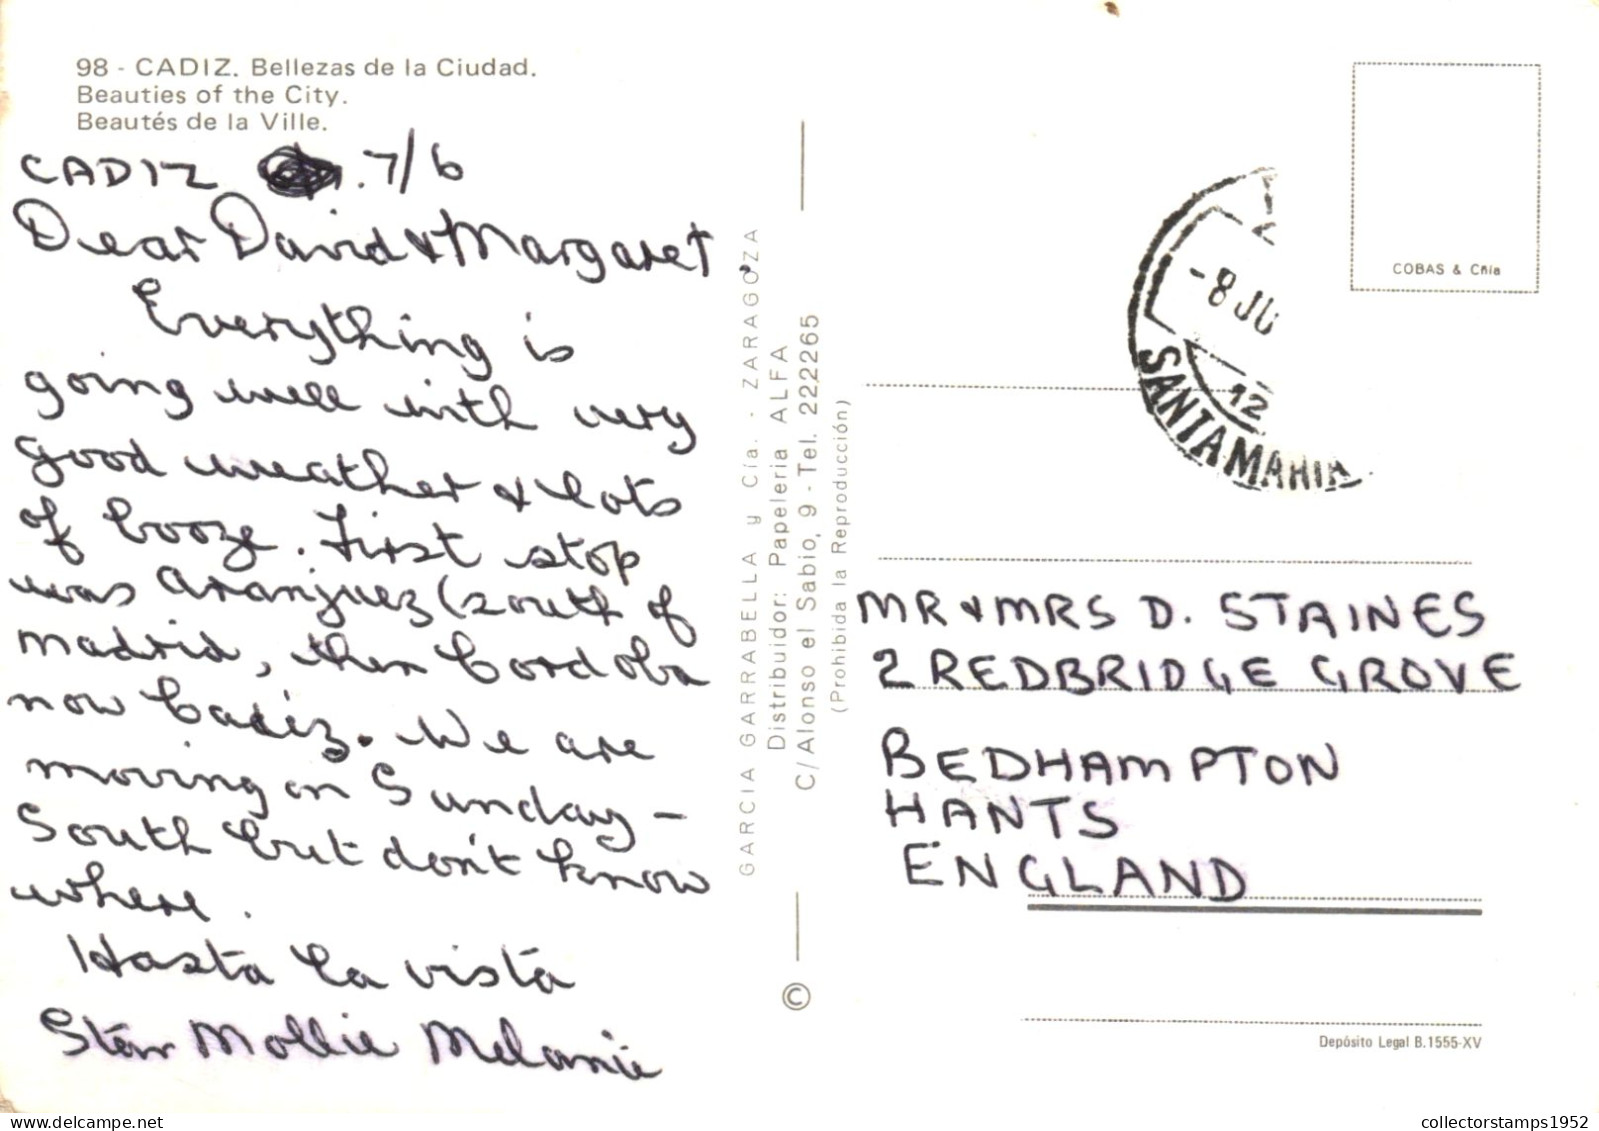 98 - CADIZ. Bellezas de la Ciudad.
Beauties of the City.
Beautés de la Ville.
CADIZ 7/6
Dear David & Margaret,
Everything is
going well with very
good weather & lots
of booze. First stop
was Aranjuez (south of
Madrid, then Cordoba
now Cadiz. We are
moving on Sunday –
South but don't know
where.
Hasta la vista
Stan Mollie Melanie
GARCIA GARRABELLA y Cía. - ZARAGOZA
Distribuidor: Papeleria ALFA
C/Alonso el Sabio, 9 - Tel. 222265
(Prohibida la Reproducción)
©
COBAS & Cñia
-8 JU
12
SANTAMARIA
MR & MRS D. STAINES
2 REDBRIDGE GROVE
BEDHAMPTON
HANTS
ENGLAND
Depósito Legal B.1555-XV
collectorstamps1952